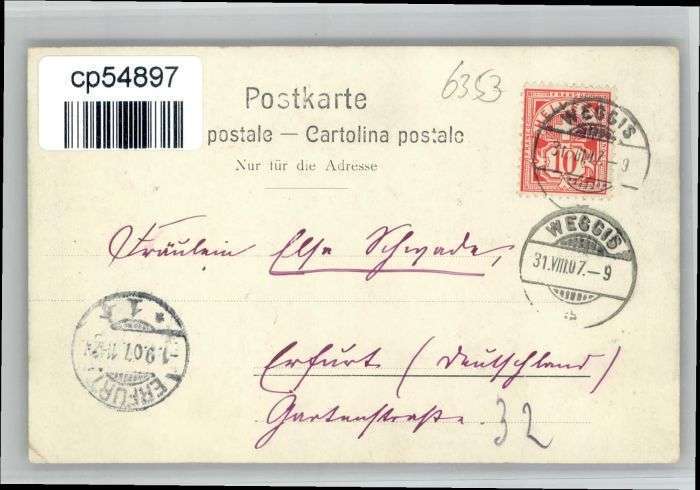 cp54897
6353
Postkarte
postale — Cartolina postale
Nur für die Adresse
10
WEGGIS
31.VIII.07.–9
WEGGIS
31.VIII.07.–9
Fräulein Else Schwade,
* 1 *
-1.9.07.
ERFURT
Erfurt (Deutschland)
Gartenstraße 32